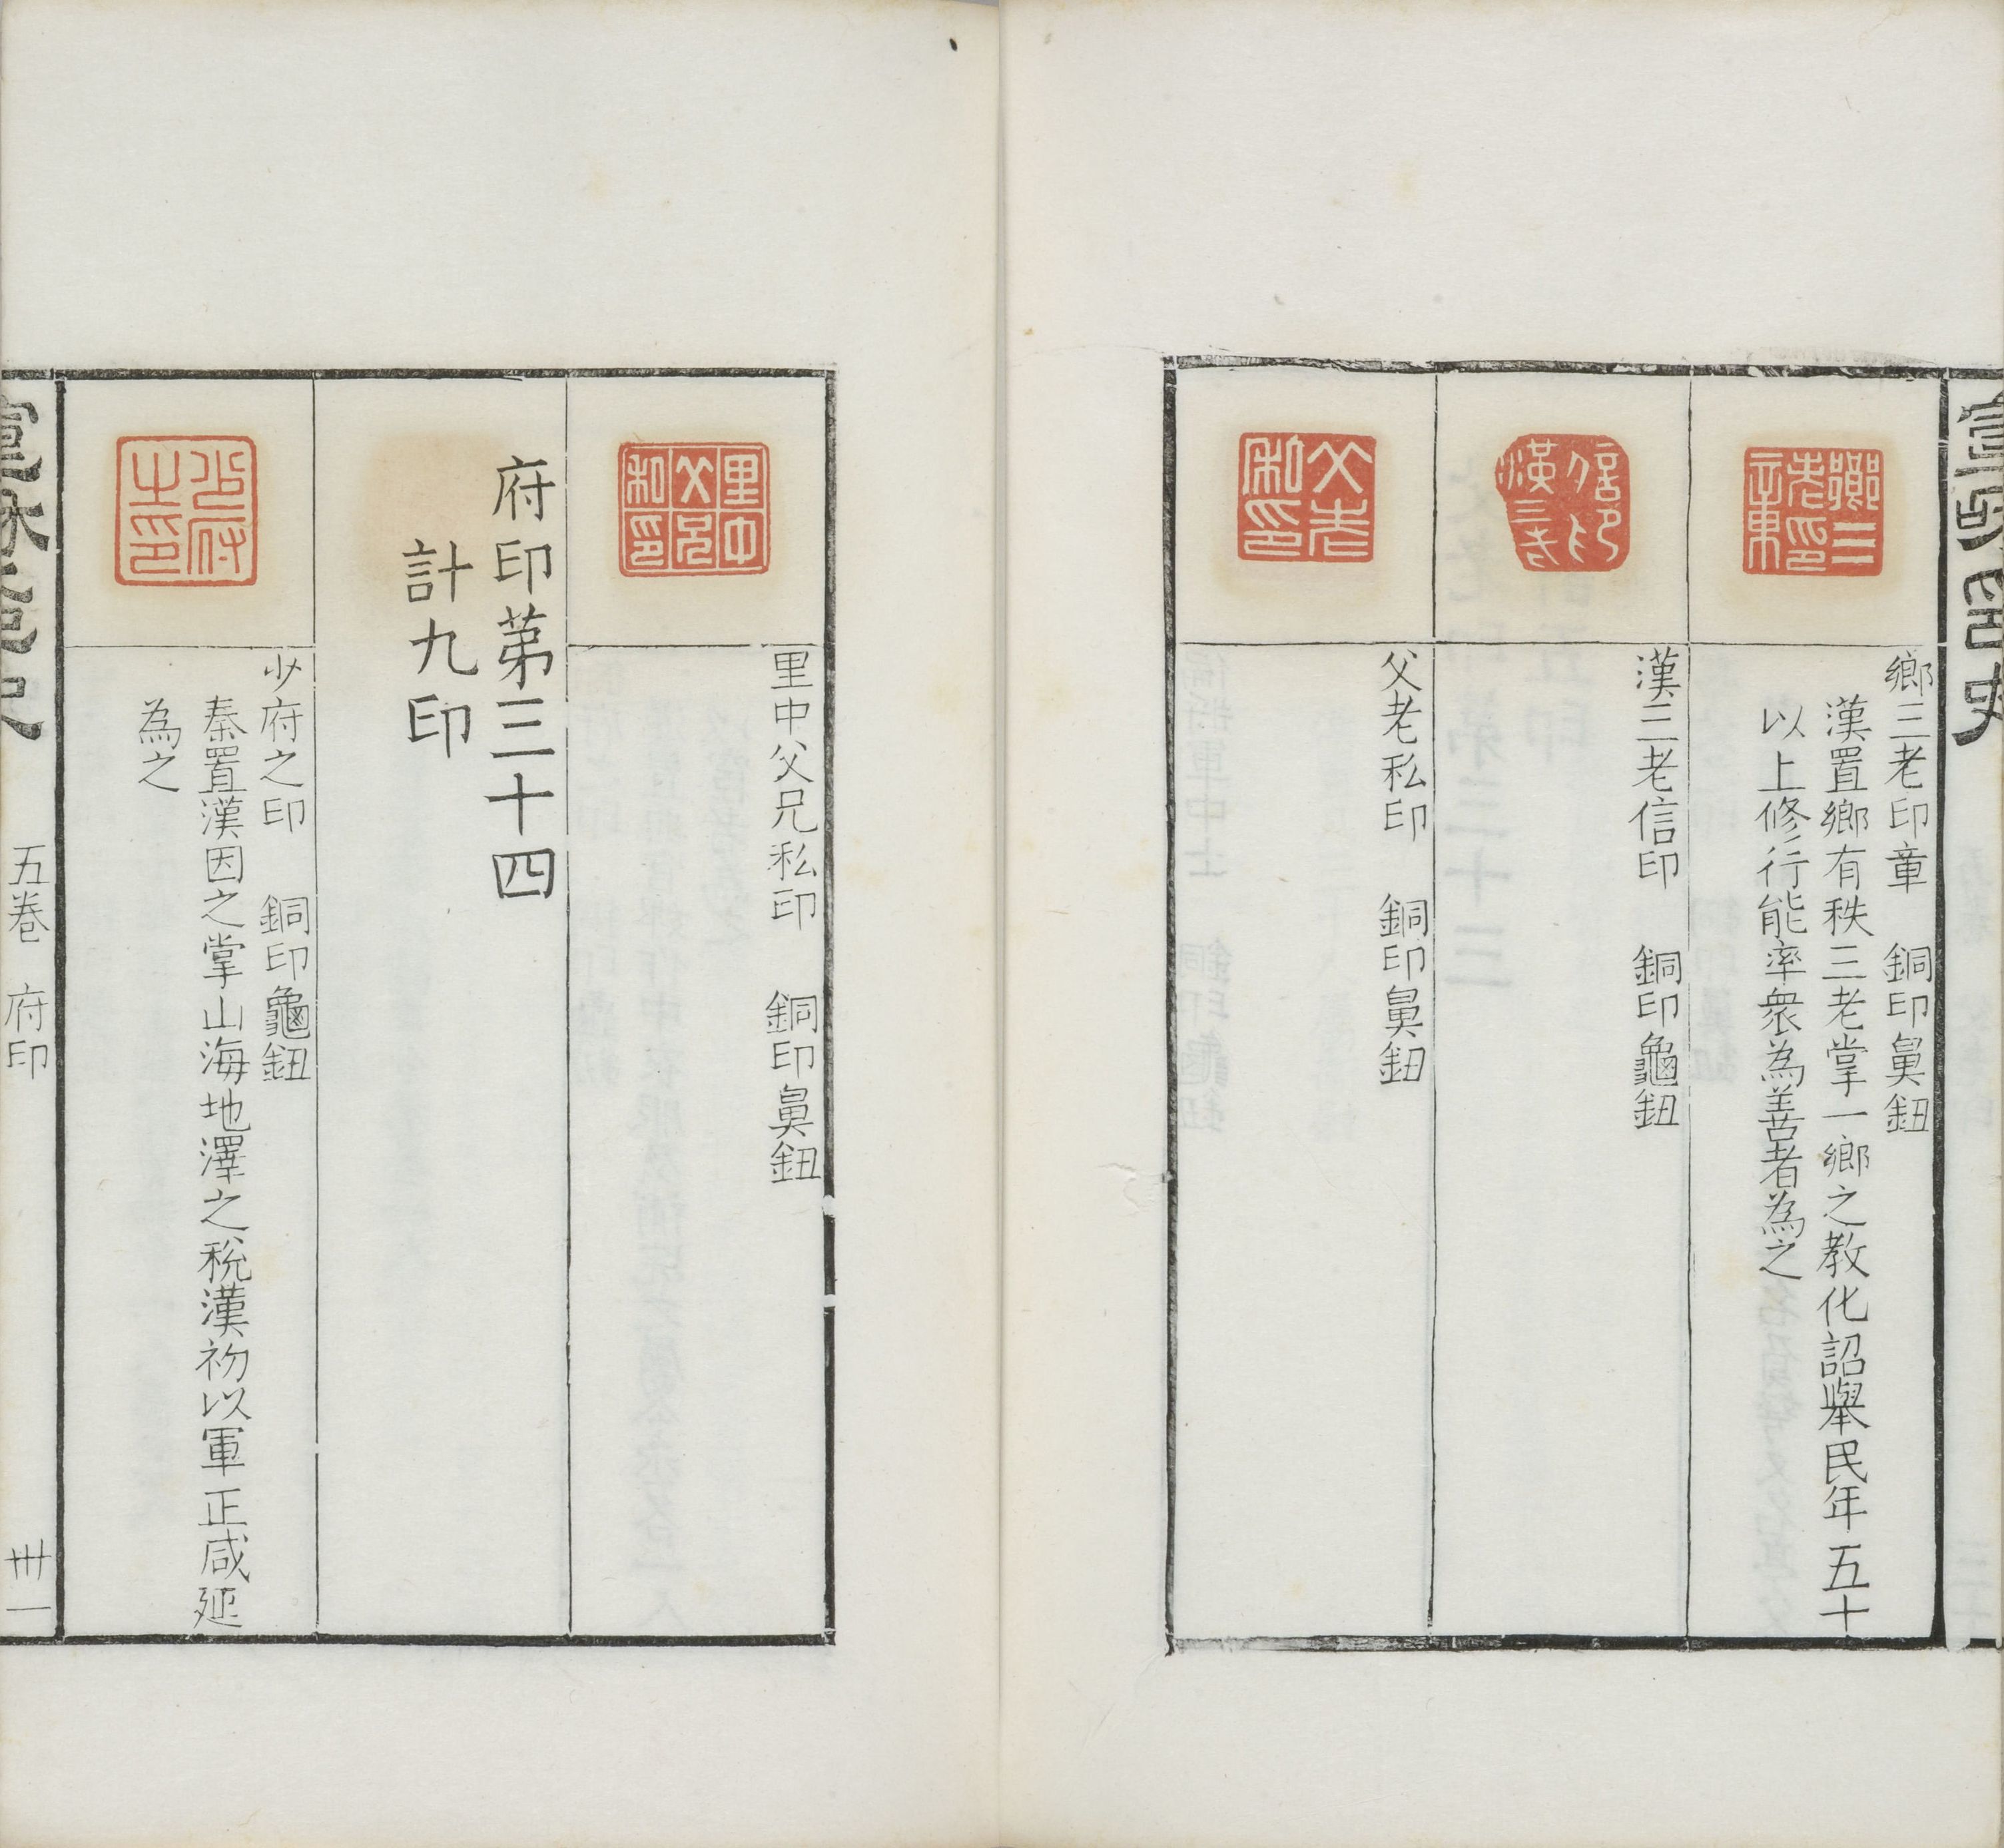 鄉三老印章 銅印鼻鈕
漢置鄉有秩三老掌一鄉之教化詔舉民年五十
以上修行能率衆為善者為之
漢三老信印 銅印龜鈕
父老私印 銅印鼻鈕
里中父兄私印 銅印鼻鈕
府印第三十四
計九印
少府之印 銅印龜鈕
秦置漢因之掌山海地澤之稅漢初以軍正咸延
為之
五卷 府印
卅一